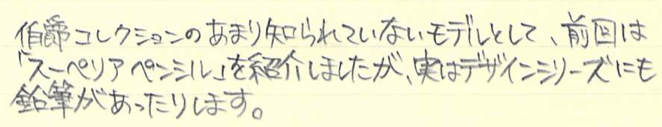 伯爵コレクションのあまり知られていないモデルとして、前回は
「スーペリアペンシル」を紹介しましたが、実はデザインシリーズにも
鉛筆があったりします。